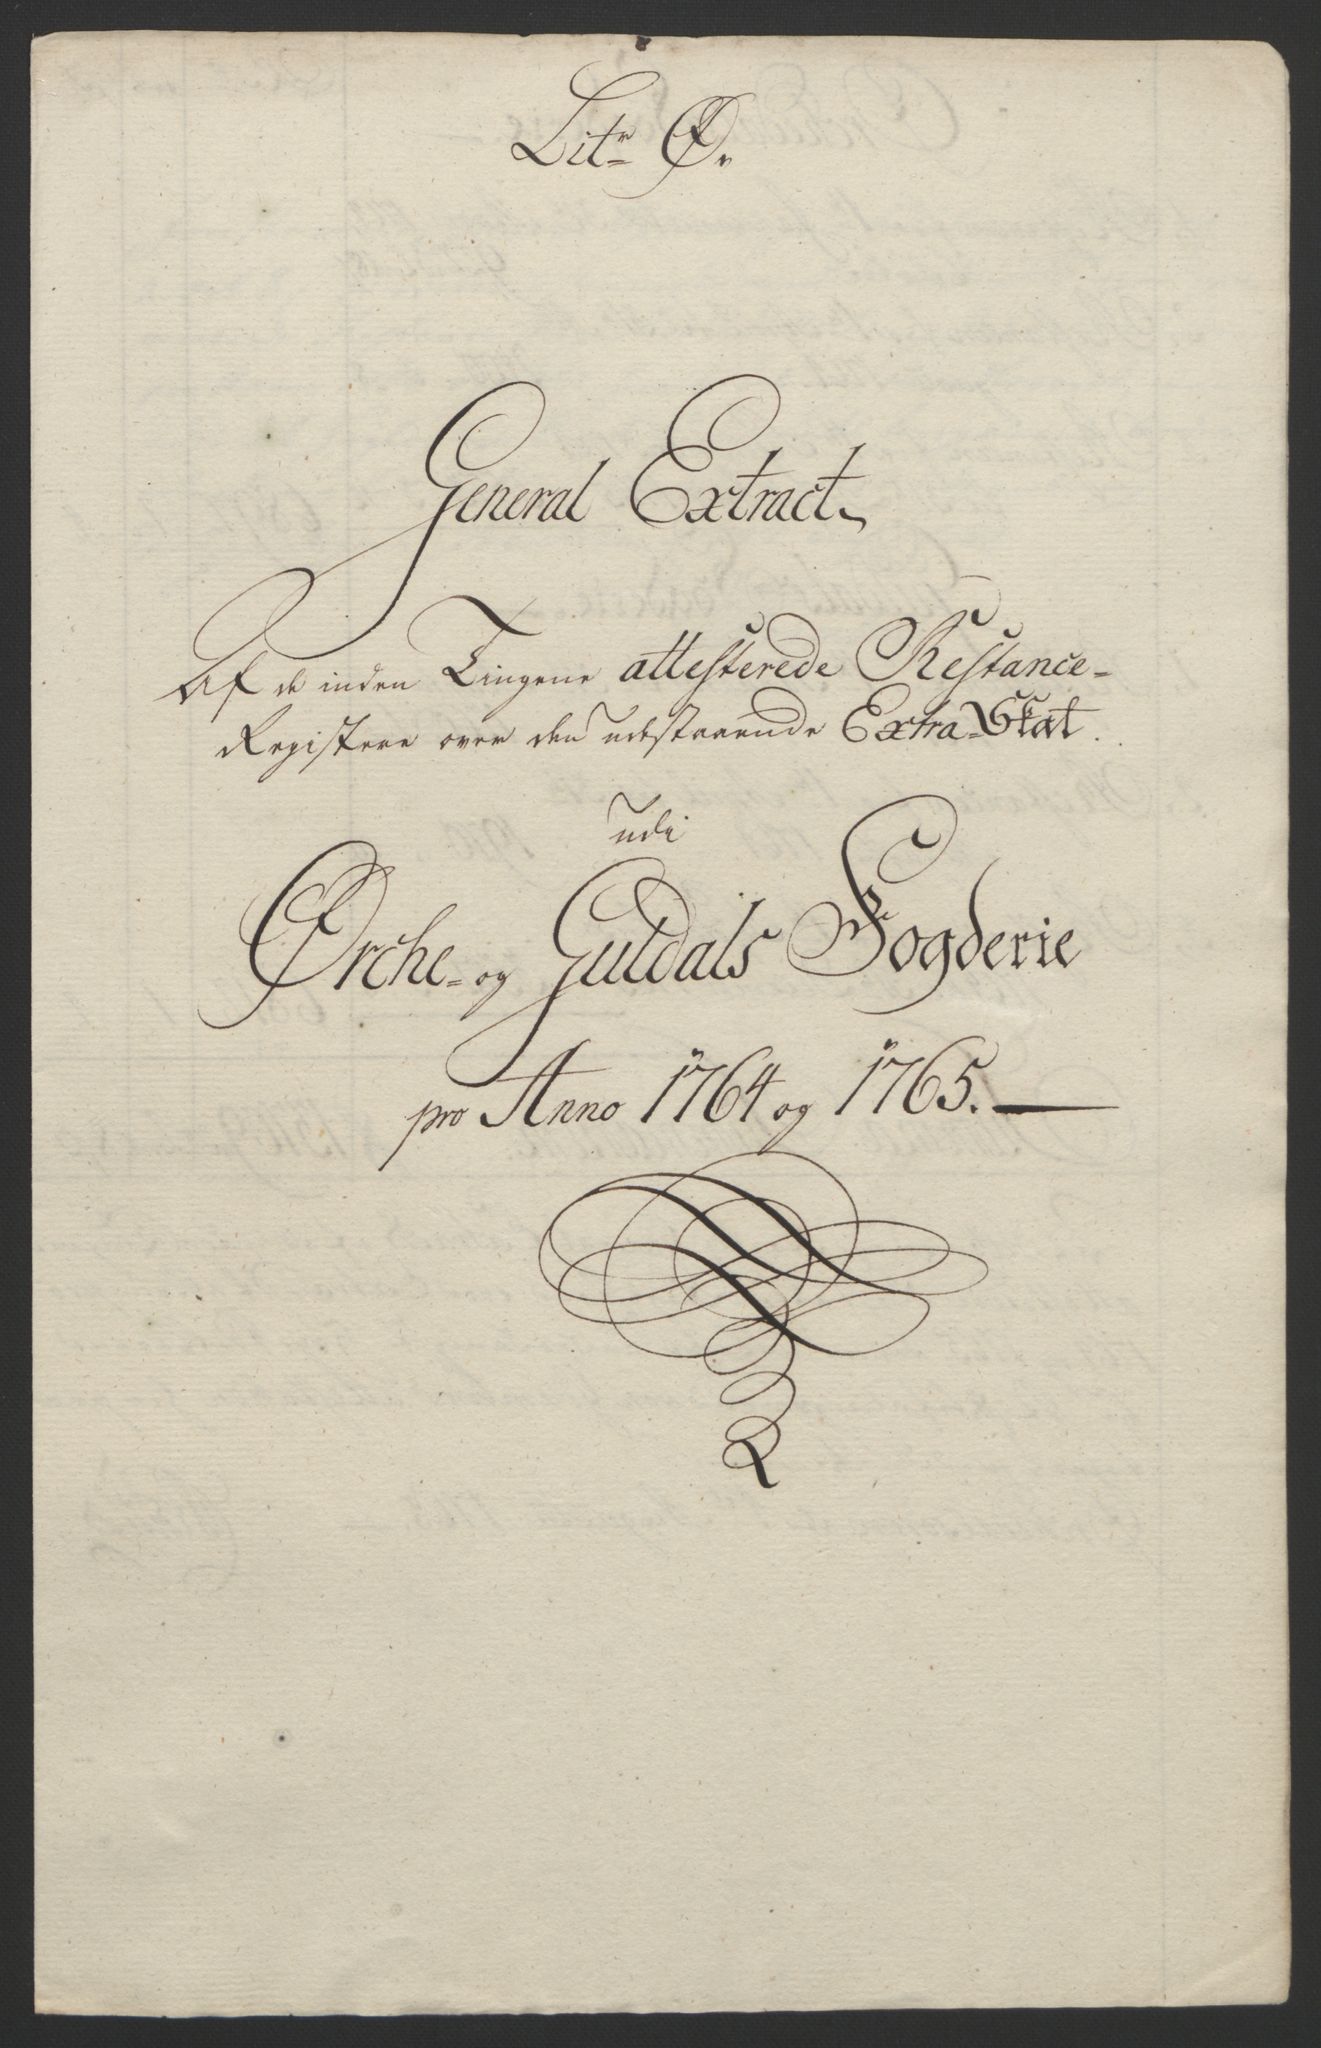 Litr Ø.
General Extract
Af de inden Tingene attesterede Restance-
Registere over den udestaaende Extra-Skat.
udi
Ørche- og Guldals Fogderie
pro Anno 1764 og 1765.